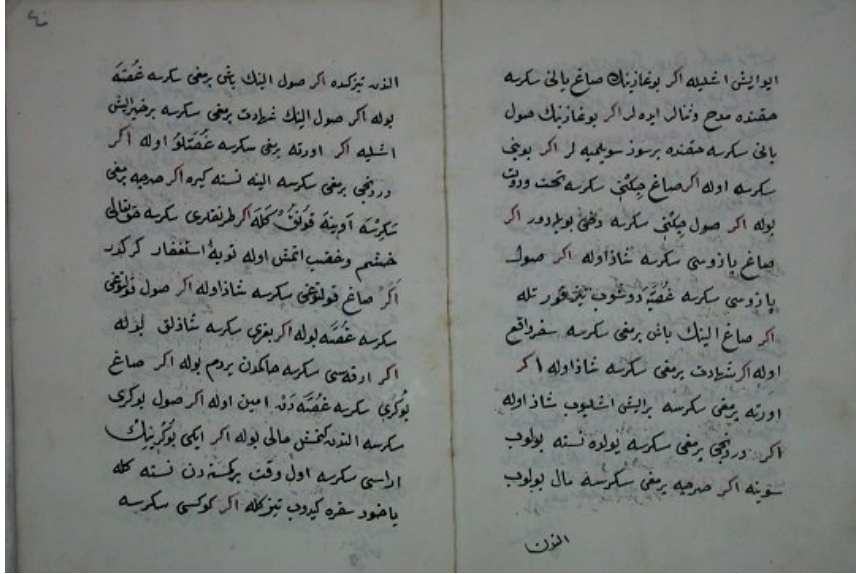 ايو ايش اشليه اكر بوغازينك صاغ يانى سكرسه
حقنده مدح و ثنالر ايده لر اكر بوغازينك صول
يانى سكرسه حقنده برسوز سويلميه لر اكر بوينى
سكرسه اوله اكر صاغ چكنى سكرسه تخت و دولت
بوله اكر صول چكنى سكرسه دخى بويله دور اكر
صاغ پازوسى سكرسه شاذ اوله اكر صول
پازوسى سكرسه غُصّيه دوشوب تيز قورتله
اكر صاغ الينك باش برمغى سكرسه سفر واقع
اوله اكر شهادت برمغى سكرسه شاذ اوله اكر
اورته برمغى سكرسه بر ايش اشليوب شاذ اوله
اكر دردنجى برمغى سكرسه يولده نسنه بولوب
سوينه اكر صرچه برمغى سكرسه مال بولوب
الندن
٤٠
الندن تيز كيده اكر صول الينك باش برمغى سكرسه غُصّه
بوله اكر صول الينك شهادت برمغى سكرسه بر خير ايش
اشليه اكر اورته برمغى سكرسه غُصّه لو اوله اكر
دردنجى برمغى سكرسه الينه نسنه كيره اكر صرچه برمغى
سَكِرْسَه اَوِينَه قونُق كَلَه اكر طرنقلرى سكرسه حق تعالى
خشم و غضب اتمش اوله توبه استغفار كركدر
اكر صاغ قولتوغى سكرسه شاذ اوله اكر صول قولتوغى
سكرسه غُصّه بوله اكر بغرى سكرسه شاذلق بوله
اكر ارقه سى سكرسه حاكمدن يردم بوله اكر صاغ
بُوكرى سكرسه غُصّه دن امين اوله اكر صول بوكرى
سكرسه الندن كتمش مالى بوله اكر ايكى بوكرينك
اراسى سكرسه اول وقت بر كسه دن نسنه كله
ياخود سفره كيدوب تيز كله اكر كوكسى سكرسه